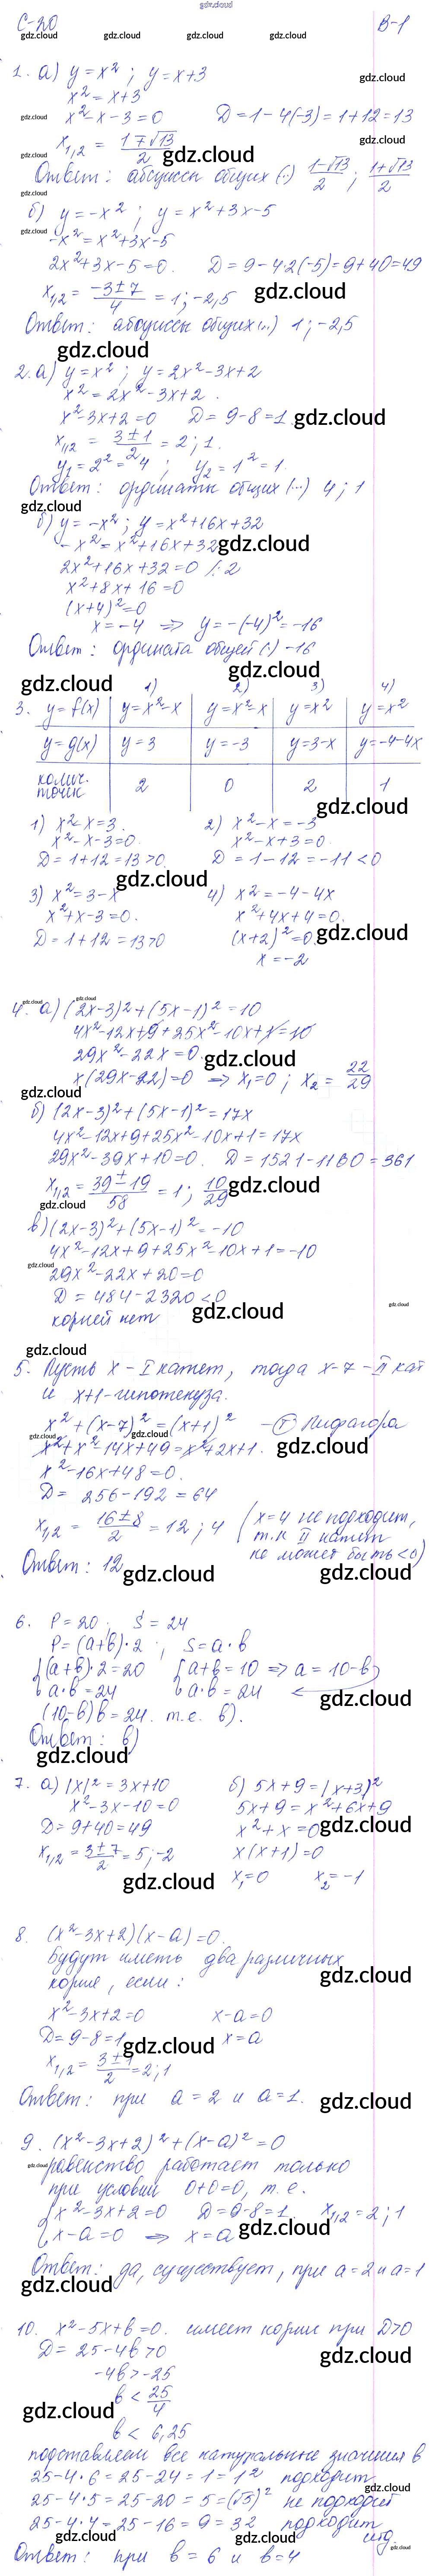 gdz.cloud
С-20 В-1
1. а) y = x²; y = x+3
x² = x+3
x²-x-3=0 D=1-4(-3)=1+12=13
x1,2 = (1±√13)/2
Ответ: абсциссы общих (·) (1-√13)/2; (1+√13)/2
б) y=-x²; y=x²+3x-5
-x²=x²+3x-5
2x²+3x-5=0. D=9-4·2(-5)=9+40=49
x1,2 = (-3±7)/4 = 1; -2,5
Ответ: абсциссы общих (..) 1; -2,5
2. а) y=x²; y=2x²-3x+2
x²=2x²-3x+2.
x²-3x+2=0 D=9-8=1.
x1,2 = (3±1)/2 = 2; 1.
y1=2²=4; y2=1²=1.
Ответ: ординаты общих (..) 4; 1
б) y=-x²; y=x²+16x+32
-x²=x²+16x+32
2x²+16x+32=0 /:2
x²+8x+16=0
(x+4)²=0
x=-4 ⇒ y=-(-4)²=-16
Ответ: ордината общей (·) -16
1) 2) 3) 4)
3. y=f(x) | y=x²-x | y=x²-x | y=x² | y=x²
y=g(x) | y=3 | y=-3 | y=3-x | y=-4-4x
колич. точек | 2 | 0 | 2 | 1
1) x²-x=3. 2) x²-x=-3
x²-x-3=0. x²-x+3=0.
D=1+12=13>0. D=1-12=-11<0
3) x²=3-x 4) x²=-4-4x
x²+x-3=0. x²+4x+4=0.
D=1+12=13>0 (x+2)²=0
x=-2
4. а) (2x-3)²+(5x-1)²=10
4x²-12x+9+25x²-10x+1=10
29x²-22x=0.
x(29x-22)=0 ⇒ x1=0; x2=22/29
б) (2x-3)²+(5x-1)²=17x
4x²-12x+9+25x²-10x+1=17x
29x²-39x+10=0. D=1521-1160=361
x1,2 = (39±19)/58 = 1; 10/29
в) (2x-3)²+(5x-1)²=-10
4x²-12x+9+25x²-10x+1=-10
29x²-22x+20=0
D=484-2320<0
корней нет
5. Пусть x - I катет, тогда x-7 - II кат
и x+1 - гипотенуза.
x²+(x-7)²=(x+1)² - Т Пифагора
x²+x²-14x+49=x²+2x+1.
x²-16x+48=0.
D=256-192=64
x1,2 = (16±8)/2 = 12; 4 (x=4 не подходит,
т.к II катет
не может быть <0)
Ответ: 12
6. P=20; S=24
P=(a+b)·2; S=a·b
{(a+b)·2=20 {a+b=10 ⇒ a=10-b
a·b=24 a·b=24
(10-b)b=24. т.е. в).
Ответ: в)
7. а) |x|²=3x+10 б) 5x+9=|x+3|²
x²-3x-10=0 5x+9=x²+6x+9
D=9+40=49 x²+x=0
x1,2 = (3±7)/2 = 5; -2 x(x+1)=0
x1=0 x2=-1
8. (x²-3x+2)(x-a)=0.
Будут иметь два различных
корня, если:
x²-3x+2=0 x-a=0
D=9-8=1 x=a
x1,2 = (3±1)/2 = 2; 1
Ответ: при a=2 и a=1.
9. (x²-3x+2)²+(x-a)²=0
равенство работает только
при условии 0+0=0, т.е.
{x²-3x+2=0 D=9-8=1. x1,2=2; 1
x-a=0 ⇒ x=a
Ответ: да, существует, при a=2 и a=1
10. x²-5x+b=0. имеет корни при D>0
D=25-4b>0
-4b>-25
b<25/4
b<6,25
подставляем все натуральные значения b
25-4·6=25-24=1=1² подходит
25-4·5=25-20=5=(√5)² не подходит
25-4·4=25-16=9=3² подходит
итд.
Ответ: при b=6 и b=4